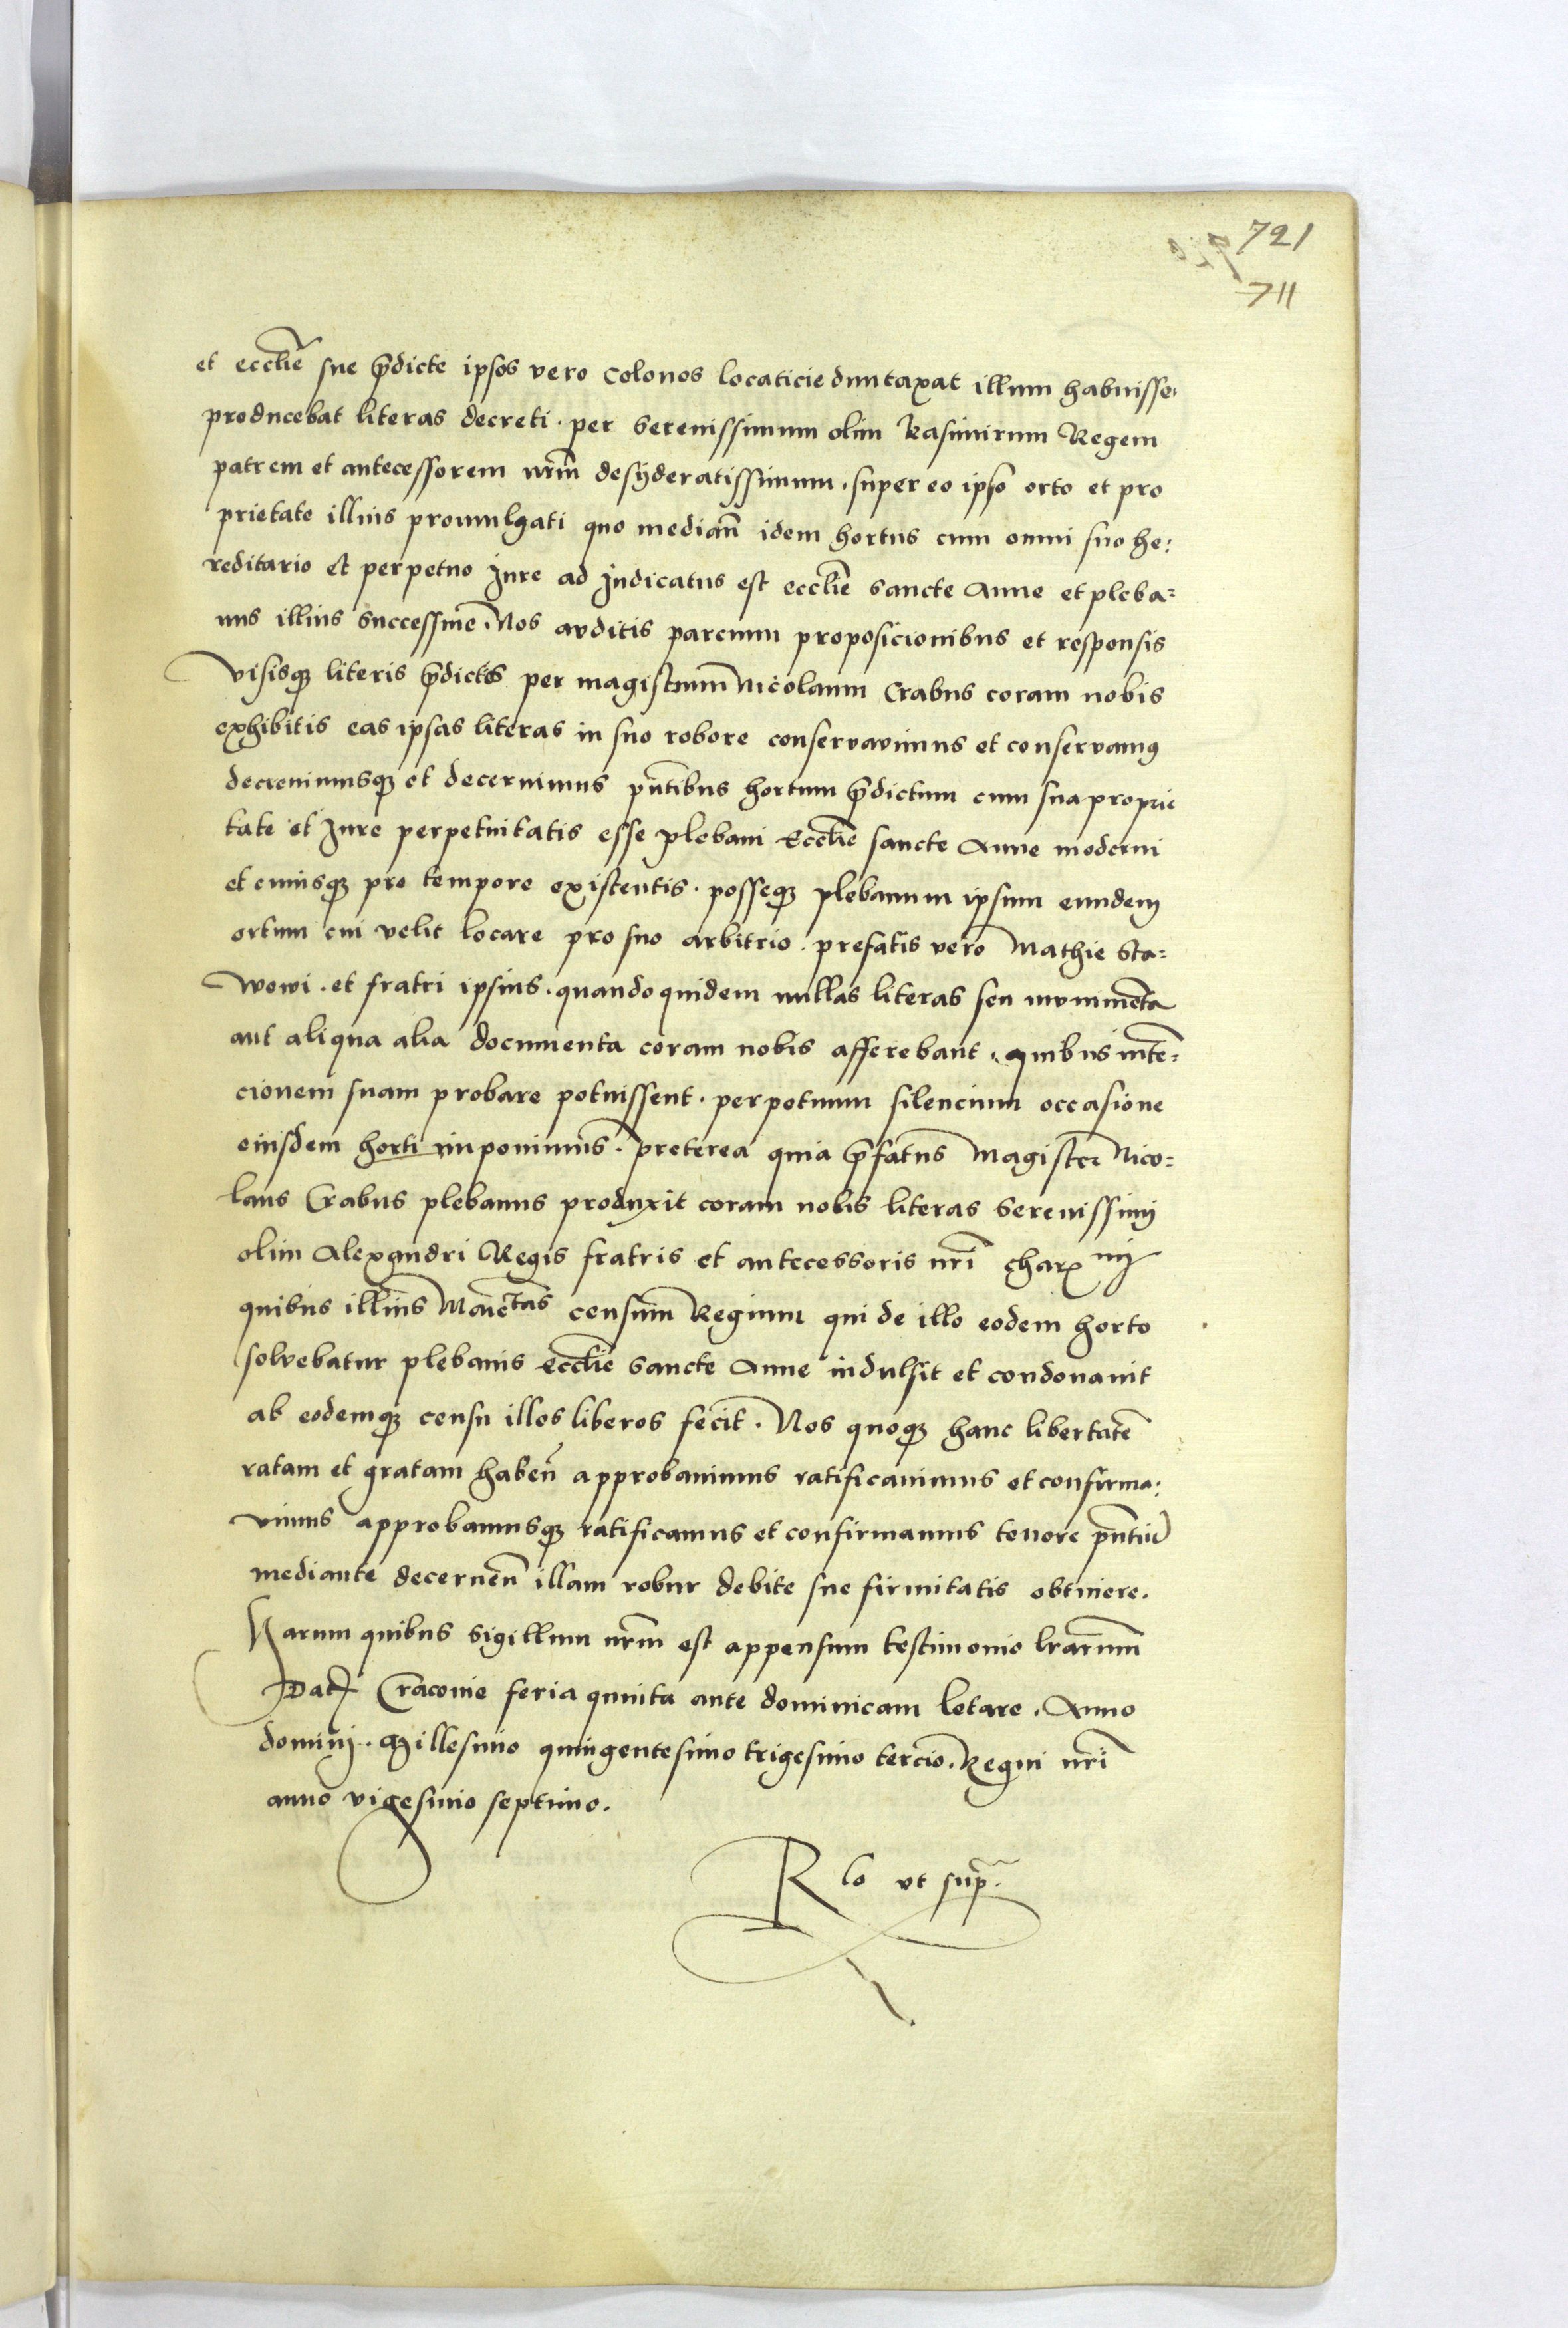 721
711
et eccľie sue p̄dicte ipsos vero colonos locaticie duntaxat illum habuisse.
producebat literas decreti. per serenissimum olim Kasimirum Regem
patrem et antecessorem nr̄m desyderatissimum. super eo ipso orto et pro
prietate illius promulgati quo median̄ idem hortus cum omni suo he:
reditario et perpetuo Jure ad Judicatus est eccľie sancte Anne et pleba=
nus illius successiue. Nos auditis parcium proposicionibus et responsis
visisqʒ literis p̄dictis per magistrum Nicolaum Crabus coram nobis
exhibitis eas ipsas literas in suo robore conservavimus et conservamꝰ
decrevimusqʒ et decernimus pn̄tibus hortum p̄dictum cum sua proprie
tate et Jure perpetuitatis esse plebani Eccľie sancte Anne moderni
et cuiusqʒ pro tempore existentis. posseqʒ plebanum ipsum eundem
ortum cui velit locare pro suo arbitrio. prefatis vero Mathie Sta=
wowi. et fratri ipsius. quandoquidem nullas literas seu munimēta
aut aliqua alia documenta coram nobis afferebant. quibus intē=
cionem suam probare potuissent. perpetuum silencium occasione
eiusdem horti imponimus. preterea quia p̄fatus Magister Nico=
laus Crabus plebanus produxit coram nobis literas serenissimi
olim Alexandri Regis fratris et antecessoris nr̄i charx mi
quibus illius Maiestas censum Regium qui de illo eodem horto
solvebatur plebanis eccľie sancte Anne indulsit et condonavit
ab eodemqʒ censu illos liberos fecit. Nos quoqʒ hanc libertatē
ratam et gratam haben̄ approbavimus ratificavimus et confirma:
vimus approbamusqʒ ratificamus et confirmamus tenore pn̄tiū
mediante decernen̄ illam robur debite sue firmitatis obtinere.
Harum quibus sigillum nr̄m est appensum testimonio lr̄arum
Dat Cracovie feria quinta ante dominicam letare. Anno
domini. Millesimo quingentesimo trigesimo tercio. Regni nr̄i
anno vigesimo septimo.
Rlo vt sup̄.